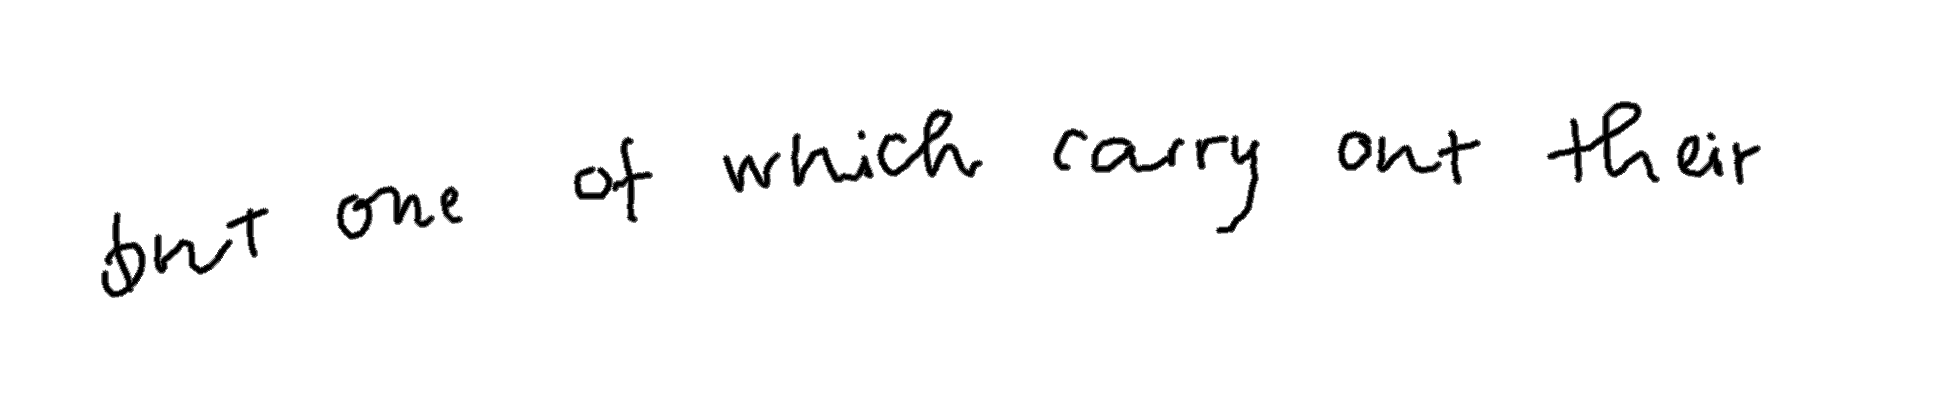 but one of which carry out their